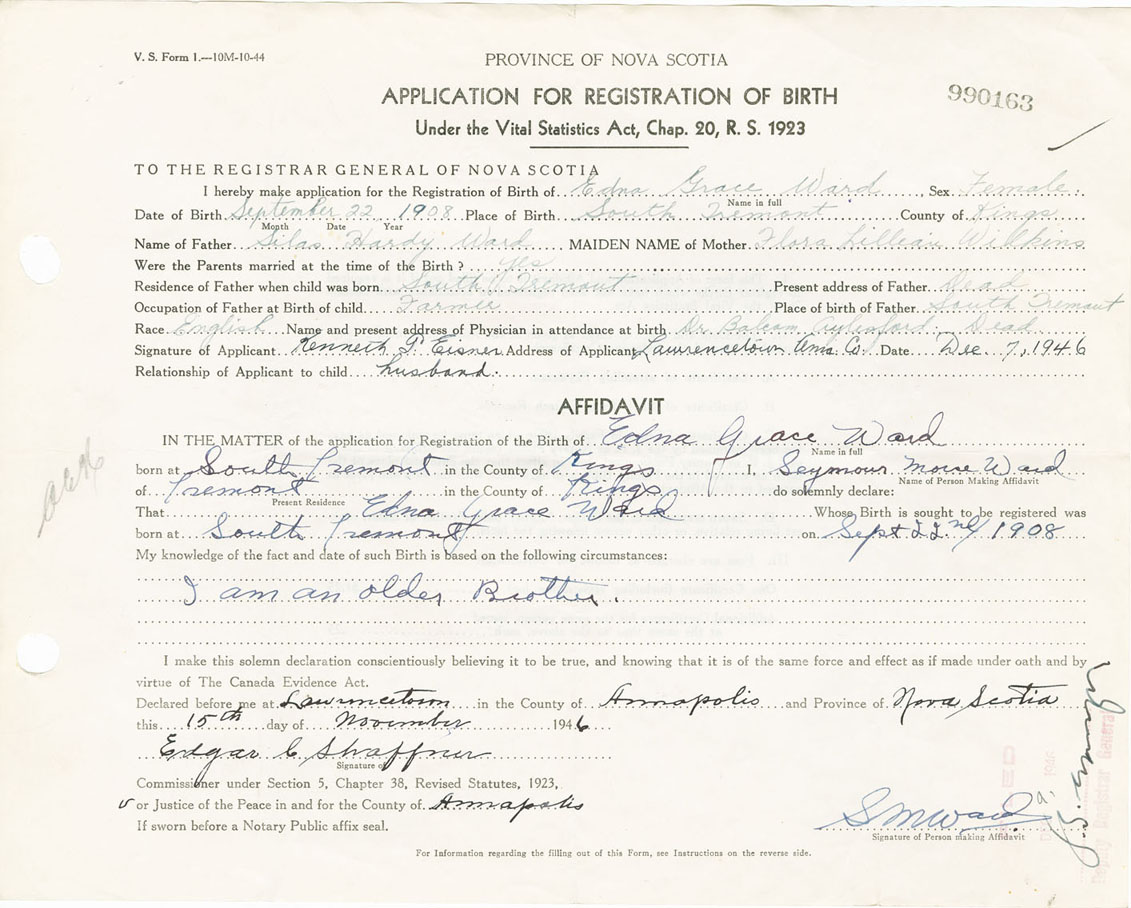 V. S. Form 1.—10M-10-44
PROVINCE OF NOVA SCOTIA
APPLICATION FOR REGISTRATION OF BIRTH
990163
Under the Vital Statistics Act, Chap. 20, R. S. 1923
TO THE REGISTRAR GENERAL OF NOVA SCOTIA
I hereby make application for the Registration of Birth of Edna Grace Ward, Sex Female
Name in full
Date of Birth September 22 1908 Place of Birth South Tremont County of Kings
Month Date Year
Name of Father Silas Hardy Ward MAIDEN NAME of Mother Flora Lillian Wilkins
Were the Parents married at the time of the Birth? yes
Residence of Father when child was born South Tremont Present address of Father Dead
Occupation of Father at Birth of child Farmer Place of birth of Father South Tremont
Race English Name and present address of Physician in attendance at birth Dr Balcom Aylesford. Dead
Signature of Applicant Kenneth P. Eisner Address of Applicant Lawrencetown Anna. Co. Date Dec. 7, 1946
Relationship of Applicant to child husband.
AFFIDAVIT
IN THE MATTER of the application for Registration of the Birth of Edna Grace Ward
Name in full
born at South Tremont in the County of Kings I, Seymour Ward
Name of Person Making Affidavit
of Tremont in the County of Kings do solemnly declare:
Present Residence
That Edna Grace Ward Whose Birth is sought to be registered was
born at South Tremont on Sept 22nd 1908
My knowledge of the fact and date of such Birth is based on the following circumstances:
I am an older Brother.
I make this solemn declaration conscientiously believing it to be true, and knowing that it is of the same force and effect as if made under oath and by
virtue of The Canada Evidence Act.
Declared before me at Lawrencetown in the County of Annapolis and Province of Nova Scotia
this 15th day of November 1946
Edgar C. Shaffner
Signature of
Commissioner under Section 5, Chapter 38, Revised Statutes, 1923,
or Justice of the Peace in and for the County of Annapolis
If sworn before a Notary Public affix seal.
S M Ward
Signature of Person making Affidavit
For Information regarding the filling out of this Form, see Instructions on the reverse side.
Deputy Registrar General